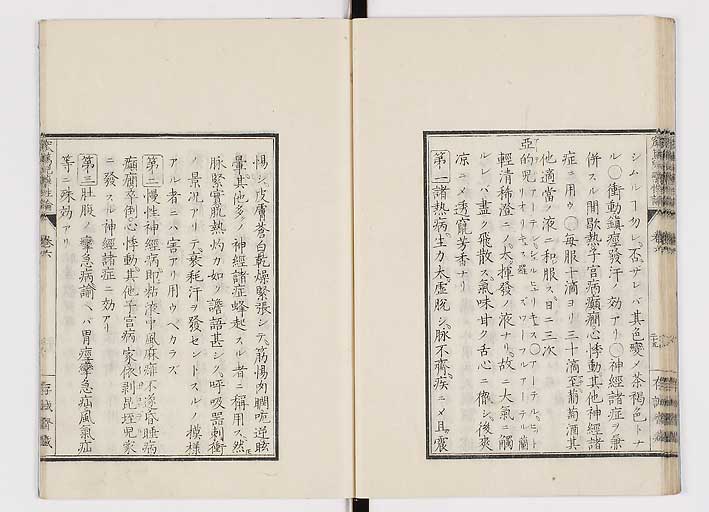 シムルヿ勿レ否サレバ其色變メ茶褐色トナ
ル○衝動鎮痙發汗ノ効アリ○神經諸症ヲ兼
併スル間歇熱子宮病癲癇心悸動其他神經諸
症ニ用ウ○毎服十滴ヨリ三十滴至葡萄酒其
他適當ノ液ニ和服ス日ニ二三次
亞的兒
輕清稀澄ニメ大揮發ノ液ナリ故ニ大氣ニ觸
ルレバ盡ク飛散ス氣味甘ク舌心ニ 後爽
凉ニメ透竄芳香ナリ
第一諸熱病生力大虚脱シ脉不齊疾ニメ且震
惕シ皮膚蒼白乾燥緊張シテ筋惕肉瞤呃逆眩
暈其他多ノ神經諸症蜂起スル者ニ稱用ス然
脉緊實肌熱灼カ如ク譫語甚シク呼吸器刺衝
ノ景况アリテ衰耗汗ヲ發セントスルノ模樣
アル者ニハ害アリ用ウベカラズ
第二慢性神經病即粘液中風麻痺不遂昏睡病
癲癇卒倒心悸動其他子宮病家依剥昆垤兒家
ニ發スル神經諸症ニ効アリ
第三肚腹ノ攣急病諭ヘバ胃痙攣急疝風氣疝
等ニ殊効アリ